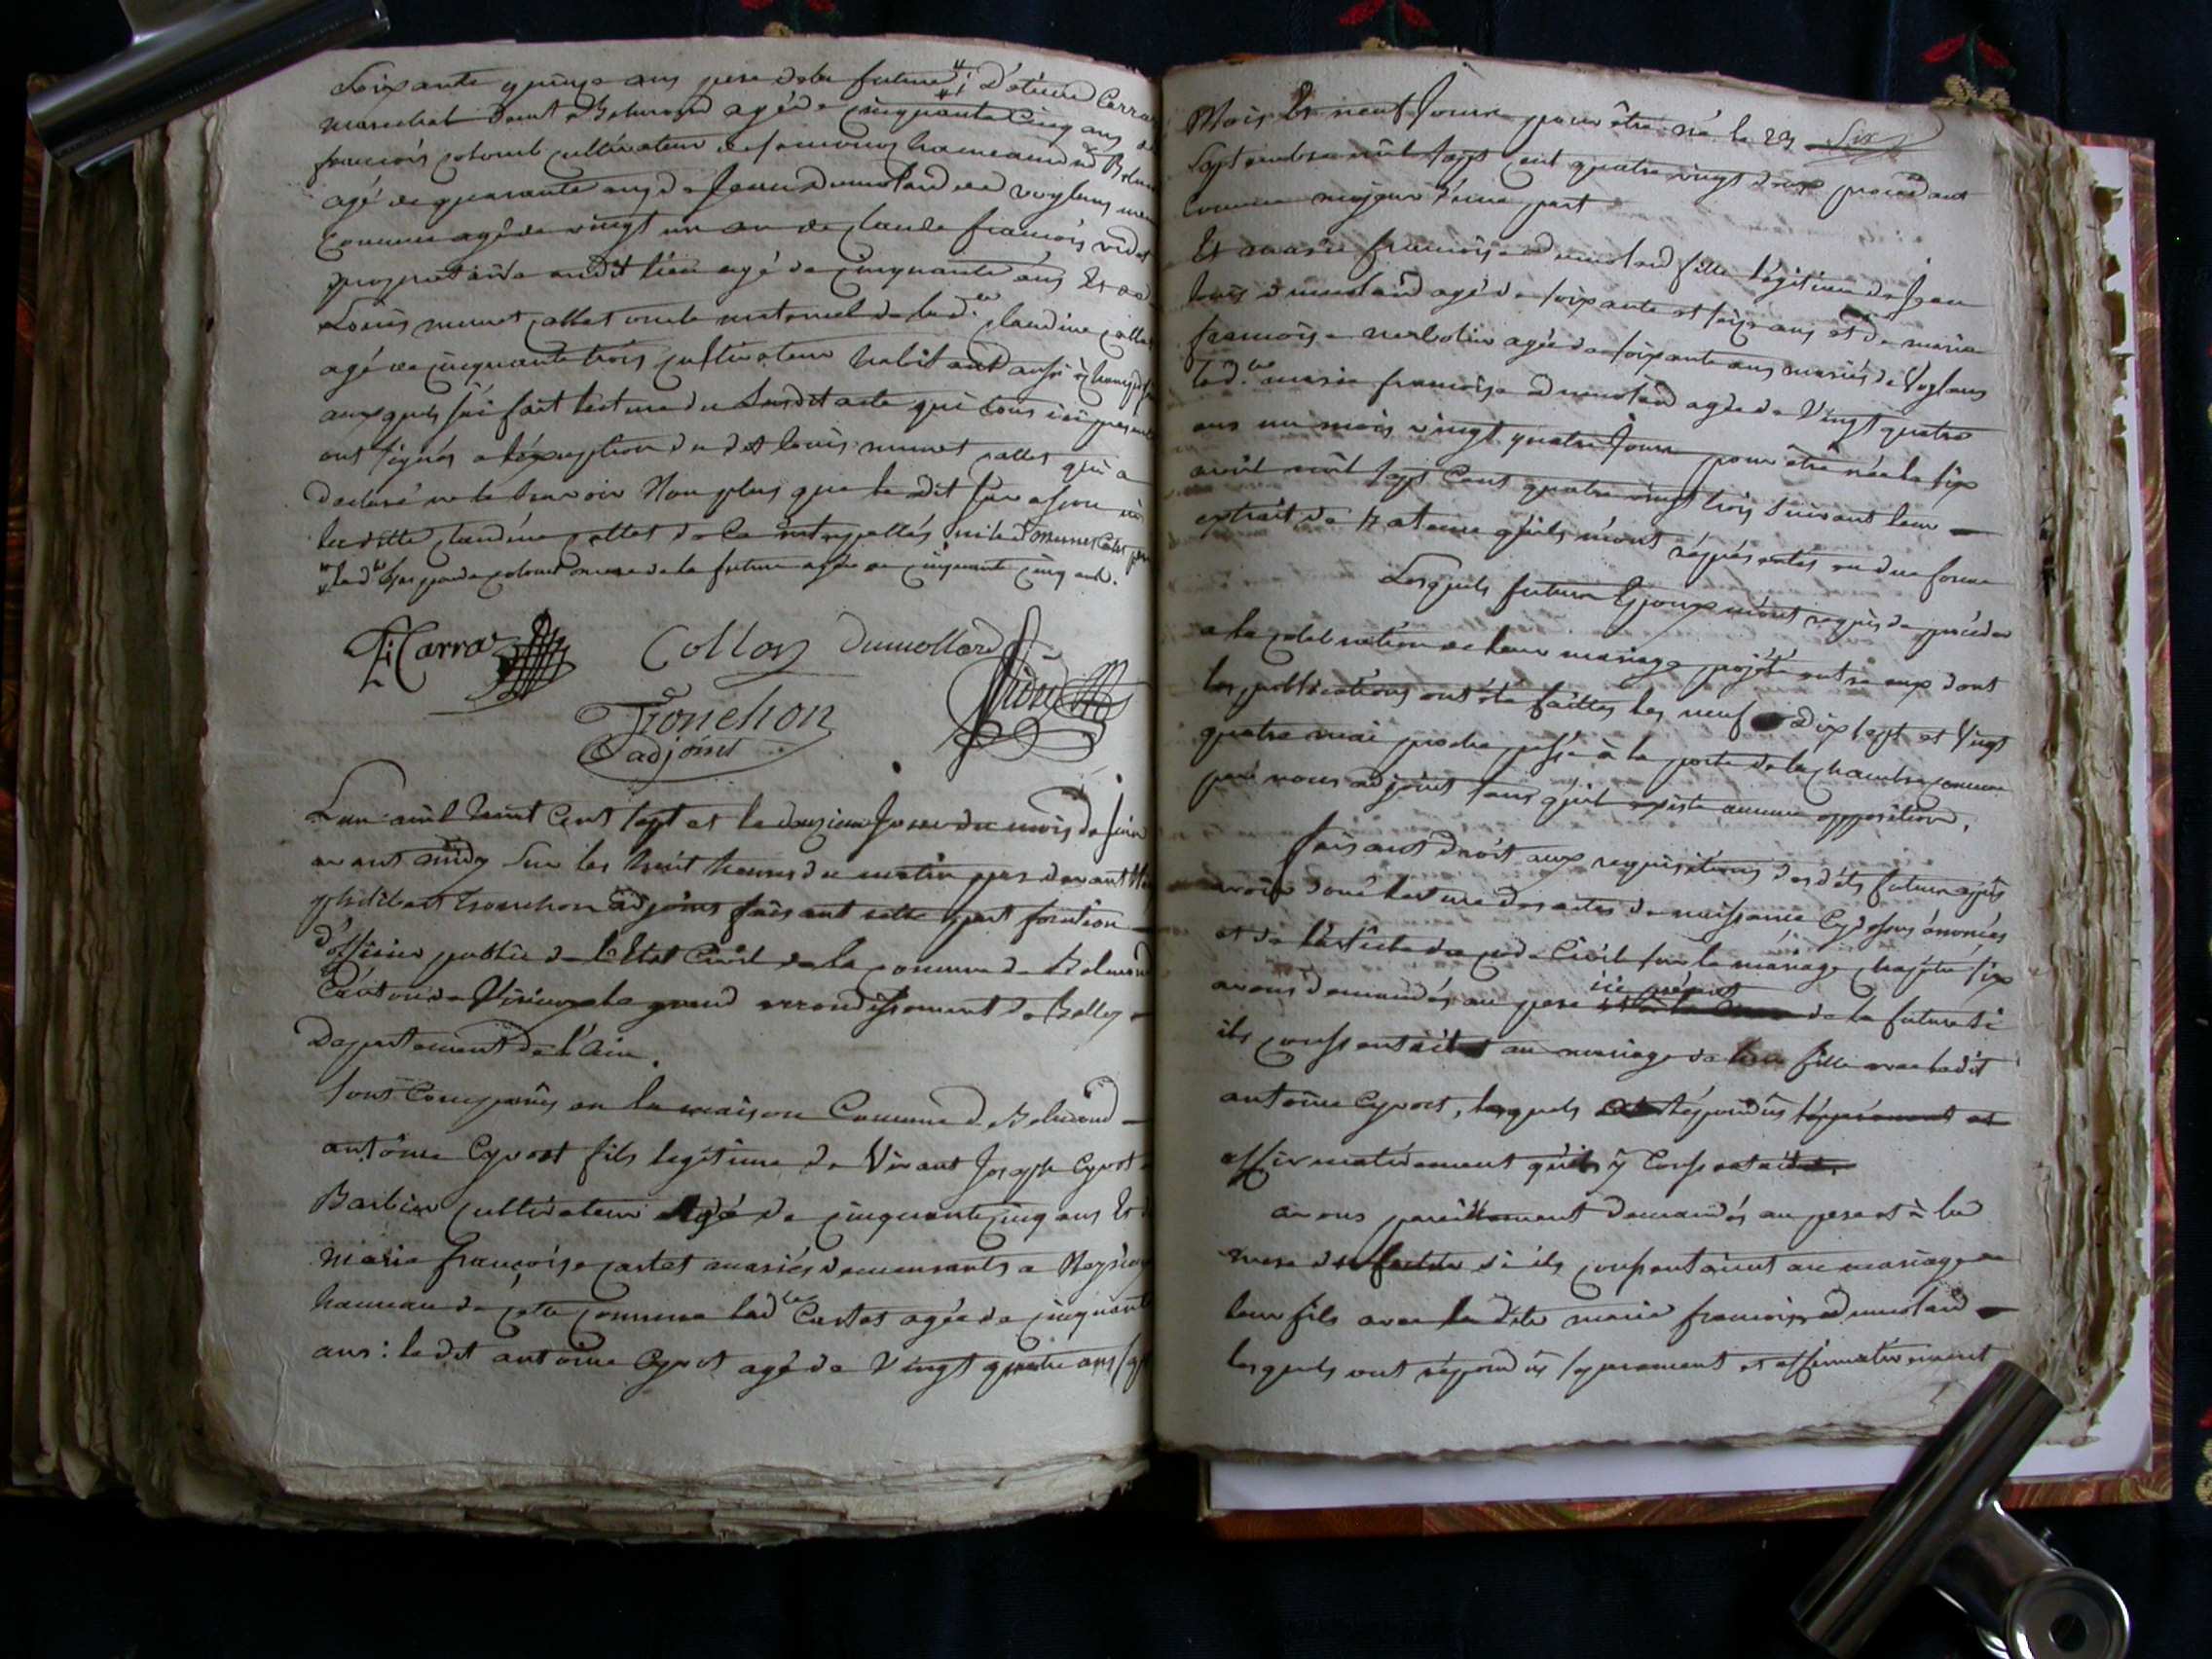 Soixante quinze ans pere de la future d'étiene Carra
marechal Deint a Belmond agé de cinquante cinq ans
françois colomb cultivateur hameau de
agé de quarante ans de Jean dumolard de voglans meme
Commune agé de vingt un an de claude françois videt
propriétaire audit lieu agé de cinquante ans Et de
Louis mmet callet oncle maternel de lad.te claudine callet
agé de cinquante trois cultivateur habitant aussi a
auxquels j'ai fait lecture du Susdit acte qui tous ici presents
ont signés a léxception du dit louis callet qui a
declaré ne le savoir Non plus que le dit
laditte claudine callet de ce intérpellés
colomb mere de la future agée de cinquante cinq ans.
E: Carra
Collon Dumollard Videt
Tronchon
adjoint
L'an mil huit Cent sept et le douzieme Jour du mois de Juin
avant midy Sur les huit heures du matin par devant Nous
philibert tronchon adjoint faisant cette part fonction
d'officier public de l'Etat Civil de la comune de Belmond
Canton de Virieux le grand arrondissement de Belley
Departement de l'Ain.
sont Comparus en la maison Comune de Belmond
antoine Cyvoct fils legitime de Vivant Joseph Cyvoct
Barbier cultivateur Agé de cinquante cinq ans Et de
Marie françoise cartet mariés demeurants a
hameau de cette comune lad.te Cartet agée de cinquante
ans : le dit antoine Cyvoct agé de Vingt quatre ans sept
Six
Mois Et neuf Jours pour être né le 23
Septembre mil sept cent quatre vingt deux procedant
Comme majeur d'une part
Et marie françoise dumolard fille légitime de Jean
louis dumolard agé de soixante et seize ans et de marie
françoise agée de soixante ans mariés de Voglans
lad.te marie françoise dumolard agée de Vingt quatre
ans un mois vingt quatre Jours pour être née le six
avril mil sept Cent quatre vingt trois suivant leur
extrait de Nataine qu'ils m'ont réprésentés en due forme
Lesquels futurs Epoux m'ont requis de procéder
a la celebration de leur mariage projété entre eux dont
les publications ont été faittes les neuf Dix sept et Vingt
quatre mai proche passé à la porte de la chambre comune
par nous adjoint sans qu'il existe aucune opposition,
faisant droit aux requisitions desdits futurs après
avoir doné lecture des actes de naissance Cy dessus énoncés
et de l'article du code Civil sur le mariage chapitre six
avons demandés au pere ici présent de la future si
ils consentoit au mariage de leur fille avec ledit
antoine Cyvoct, lesquels répondus séparément et
affirmativement qu'ils y Consentoit
avons pareillement demandés au pere et à la
mere de si ils consentoient au mariage de
leur fils avec la dite marie françoise dumolard
lesquels ont répondus séparement et affirmativement